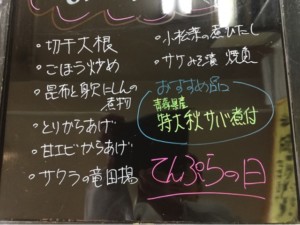 ・切干大根
・ごぼう炒め
・昆布と身欠にしんの
煮物
・とりからあげ
・甘エビからあげ
・サクラの竜田揚
・小松菜の煮びたし
・サケみそ漬 焼魚
おすすめ品
青森県産
特大秋サバ煮付
てんぷらの日